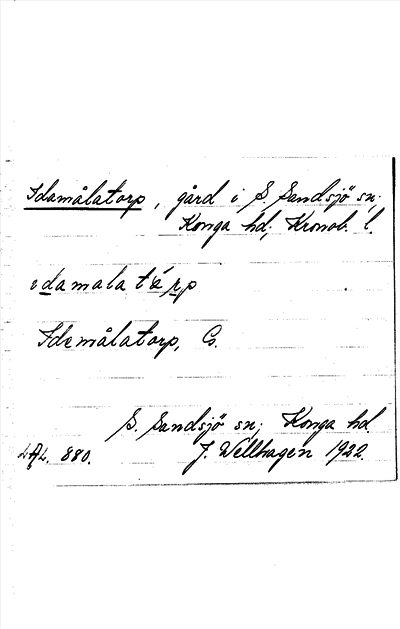 Idamålatorp, gård i S. Sandsjö sn;
Konga hd; Kronob. l.
idamala tɷ́rp
Idemålatorp, G.
S. Sandsjö sn; Konga hd.
LAL. 880. J. Wellhagen 1922.